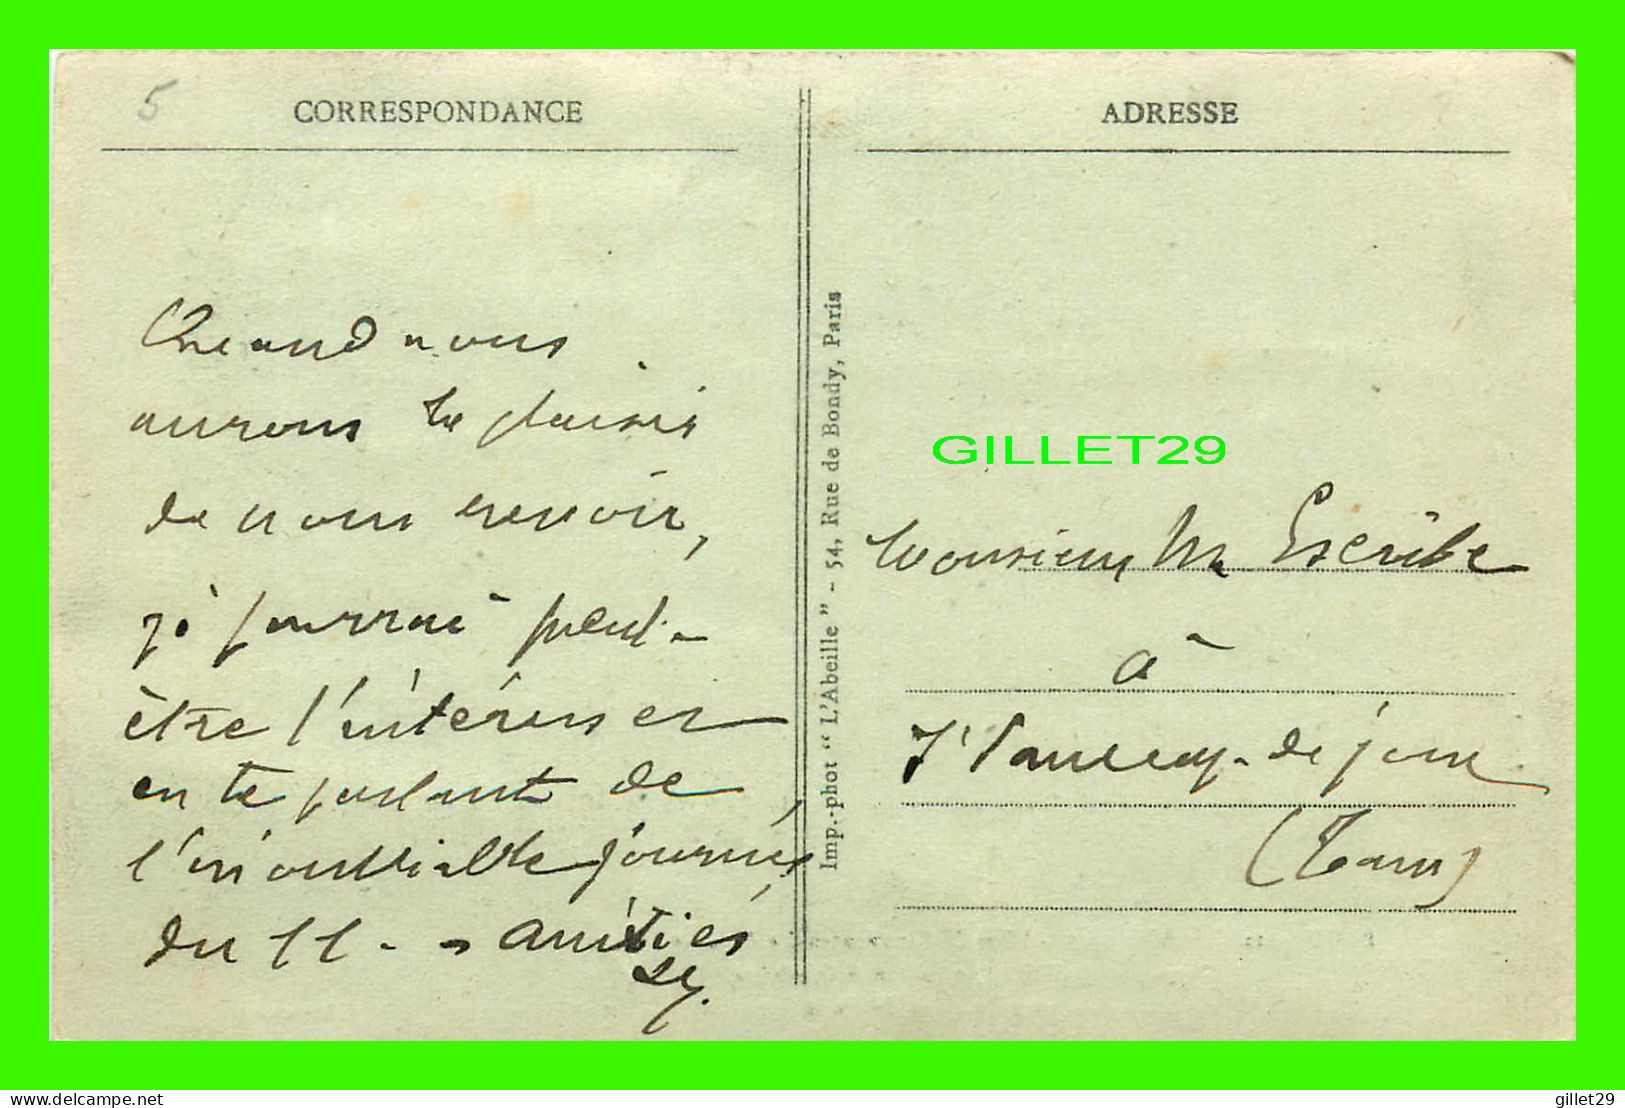 5
CORRESPONDANCE
Quand nous
aurons le plaisir
de nous revoir,
je pourrai peut-
être t'intéresser
en te parlant de
l'inoubliable journée
du 11 - - amitiés
Imp.-phot " L'Abeille " - 54, Rue de Bondy, Paris
ADRESSE
GILLET29
Monsieur M Escribe
à
St de
(Tarn)
delcampe.net
gillet29